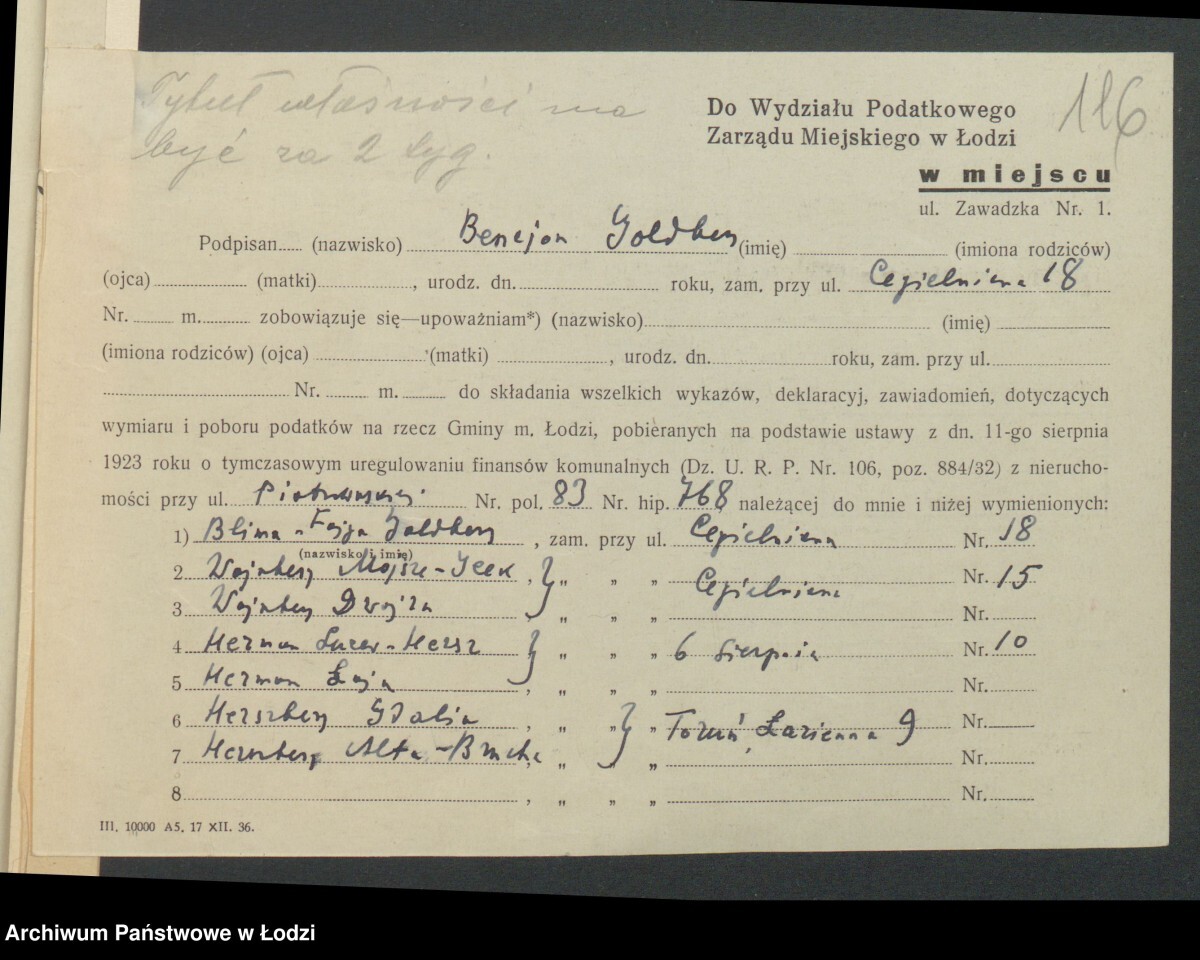 Tytuł własności ma
być za 2 tyg.
116
Do Wydziału Podatkowego
Zarządu Miejskiego w Łodzi
w miejscu
ul. Zawadzka Nr. 1.
Podpisan...... (nazwisko) Bencjon Goldberg (imię) (imiona rodziców)
(ojca) (matki) , urodz. dn. roku, zam. przy ul. Cegielniana 18
Nr. m. zobowiązuje się—upoważniam*) (nazwisko) (imię)
(imiona rodziców) (ojca) (matki) , urodz. dn. roku, zam. przy ul.
Nr. m. do składania wszelkich wykazów, deklaracyj, zawiadomień, dotyczących
wymiaru i poboru podatków na rzecz Gminy m. Łodzi, pobieranych na podstawie ustawy z dn. 11-go sierpnia
1923 roku o tymczasowym uregulowaniu finansów komunalnych (Dz. U. R. P. Nr. 106, poz. 884/32) z nierucho-
mości przy ul. Piotrkowskiej Nr. pol. 83 Nr. hip. 768 należącej do mnie i niżej wymienionych:
1) Blima-Fajga Goldberg , zam. przy ul. Cegielniana Nr. 18
(nazwisko i imię)
2 Wajnberg Mojsze-Icek , „ „ „ Cegielniana Nr. 15
3 Wajnberg Dwojra „ „ „ Nr.
4 Herman Lazer-Hersz „ „ „ 6 Sierpnia Nr. 10
5 Herman Łaja , „ „ „ Nr.
6 Herszberg Gdalia , „ „ „ Toruń, Łazienna 9 Nr.
7 Herszberg Alta-Brucha , „ „ Nr.
8 , „ „ „ Nr.
III. 10000 A5. 17 XII. 36.
Archiwum Państwowe w Łodzi